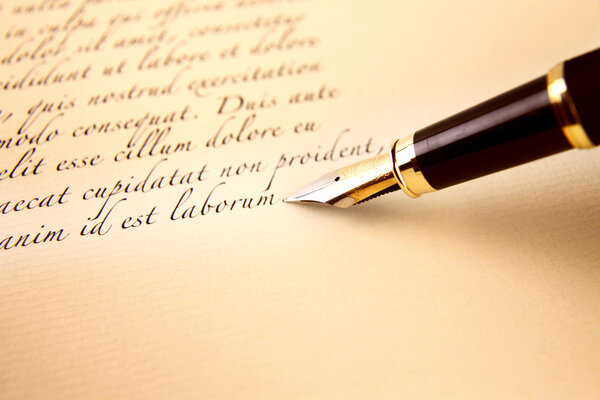 in culpa qui officia
dolor sit amet, consectetur
cididunt ut labore et dolore
, quis nostrud exercitation
modo consequat. Duis aute
elit esse cillum dolore eu
aecat cupidatat non proident,
anim id est laborum